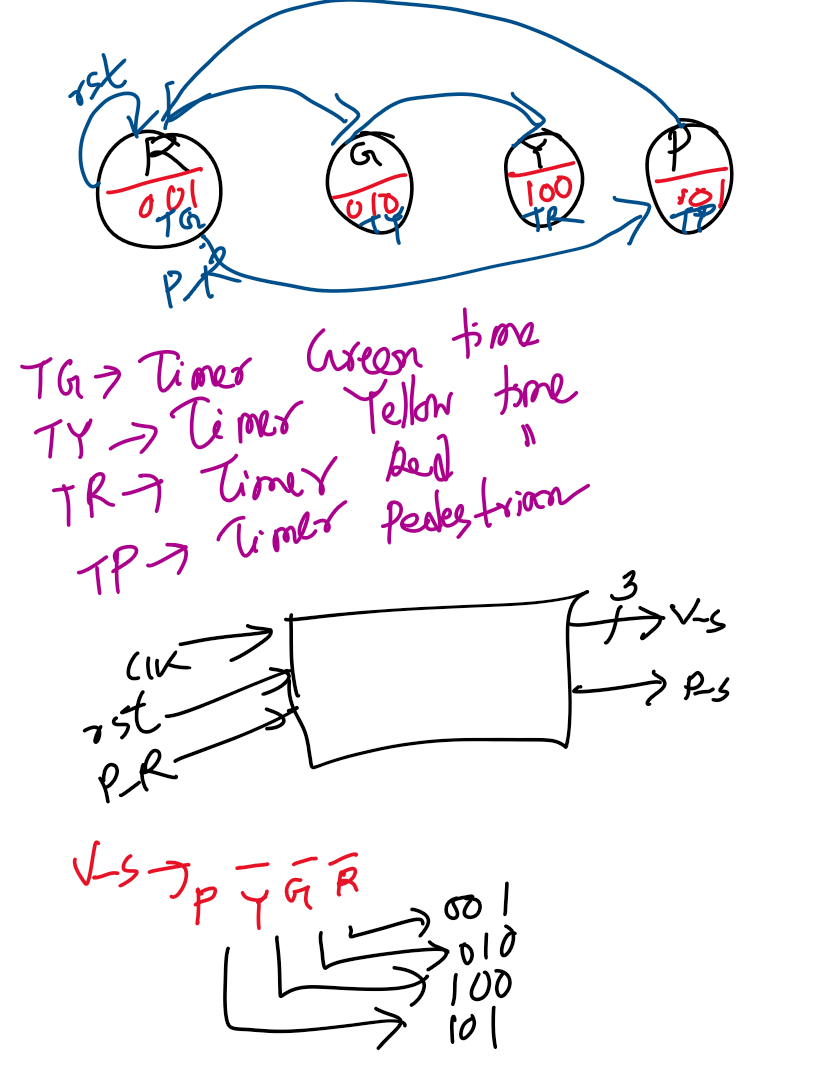 rst
R G Y P
001 010 100 101
TG TY TR TP
P_R
TG → Timer Green time
TY → Timer Yellow time
TR → Timer Red "
TP → Timer Pedestrian
3
CLK V_s
rst P_s
P_R
V_s → P Y G R
001
010
100
101